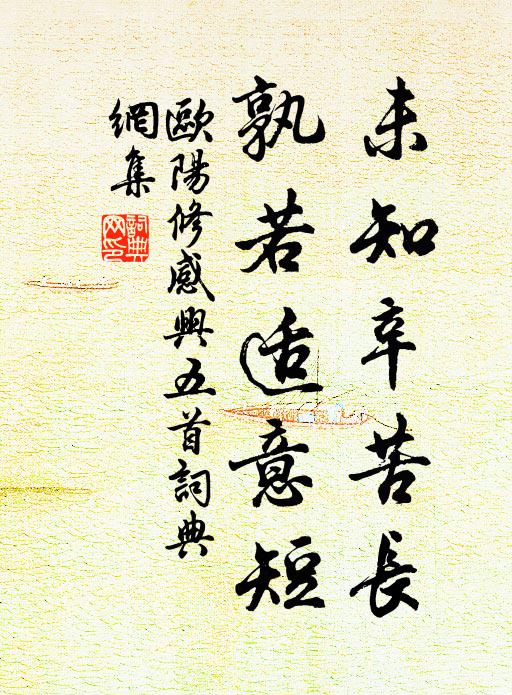 未知辛苦長
孰若适意短
歐陽修感興五首詞典
網集
詞典
网印